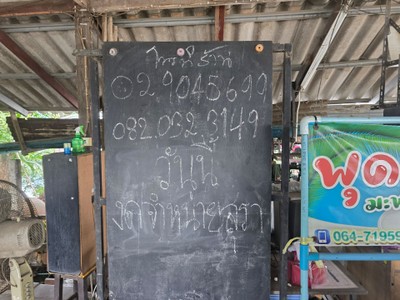 โทรที่ร้าน
02.9045699
082.032.3149
วันนี้
งดจำหน่ายสุรา
พุด
มะพ
064-71959